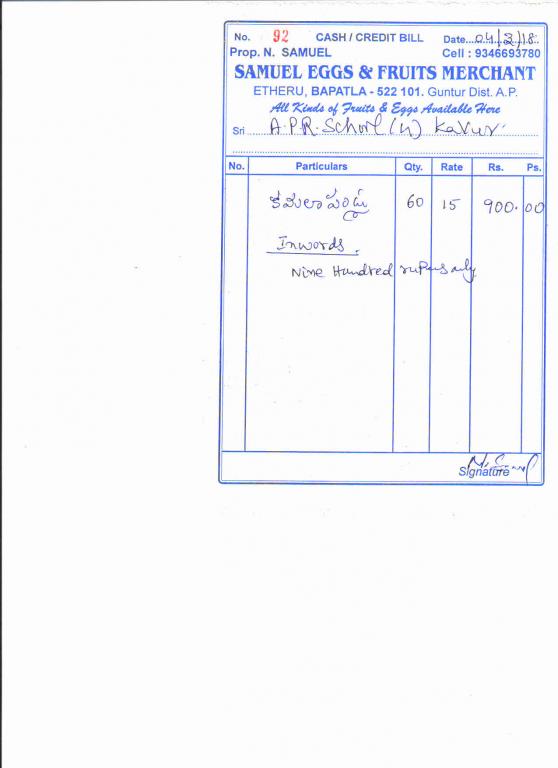 No. 92 CASH / CREDIT BILL Date...04/2/18
Prop. N. SAMUEL Cell : 9346693780
SAMUEL EGGS & FRUITS MERCHANT
ETHERU, BAPATLA - 522 101. Guntur Dist. A.P.
All Kinds of Fruits & Eggs Available Here
Sri A.P.R. School (U) Kavur
No. Particulars Qty. Rate Rs. Ps.
కమలా పండ్లు 60 15 900.00
Inwords.
Nine Hundred rupees only
Signature